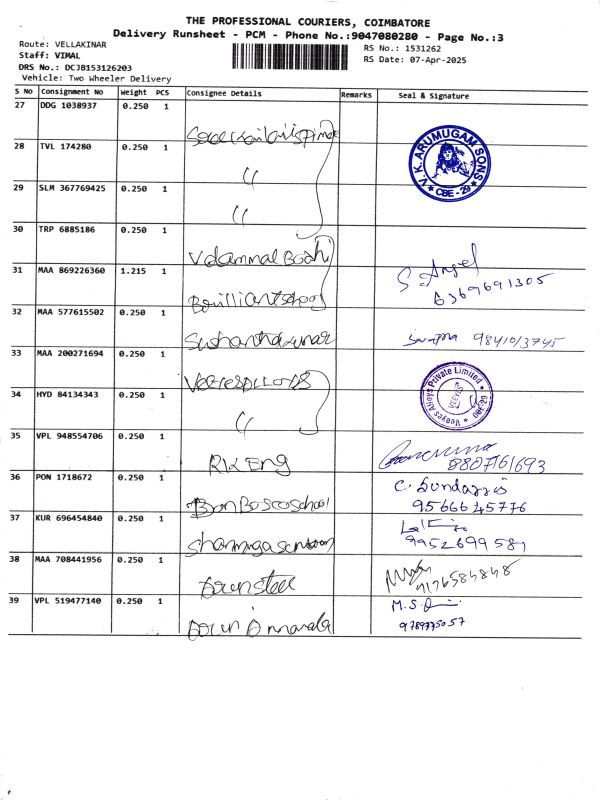 THE PROFESSIONAL COURIERS, COIMBATORE
Delivery Runsheet - PCM - Phone No.:9047080280 - Page No.:3
Route: VELLAKINAR
Staff: VIMAL
DRS No.: DCJB153126203
Vehicle: Two Wheeler Delivery
RS No.: 1531262
RS Date: 07-Apr-2025
S No Consignment No Weight PCS Consignee Details Remarks Seal & Signature
27 DDG 1038937 0.250 1
V.K. ARUMUGAM SONS * CBE - 29 *
28 TVL 174280 0.250 1 "
29 SLM 367769425 0.250 1 "
30 TRP 6885186 0.250 1 Velammal Bodhi
31 MAA 869226360 1.215 1 Brilliant school S. Angel 6369691305
32 MAA 577615502 0.250 1
33 MAA 200271694 0.250 1
Veeyes Alloys Private Limited * CBE-29 * VEEYES
34 HYD 84134343 0.250 1 "
35 VPL 948554706 0.250 1 RK Eng 8807161693
36 PON 1718672 0.250 1 Don Bosco school C. Sundar 9566645776
37 KUR 696454840 0.250 1
38 MAA 708441956 0.250 1 9176584848
39 VPL 519477140 0.250 1 M.S. 9789775057